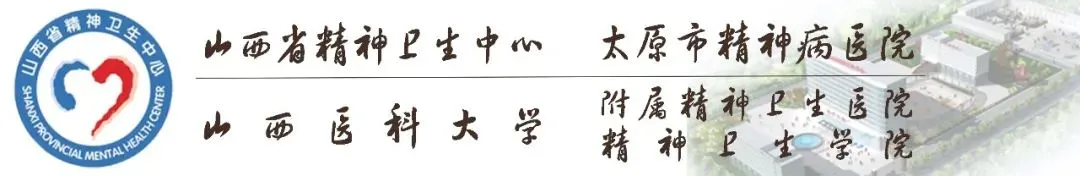 山西省精神卫生中心
SHANXI PROVINCIAL MENTAL HEALTH CENTER
山西省精神卫生中心 太原市精神病医院
山西医科大学 附属精神卫生医院
精神卫生学院